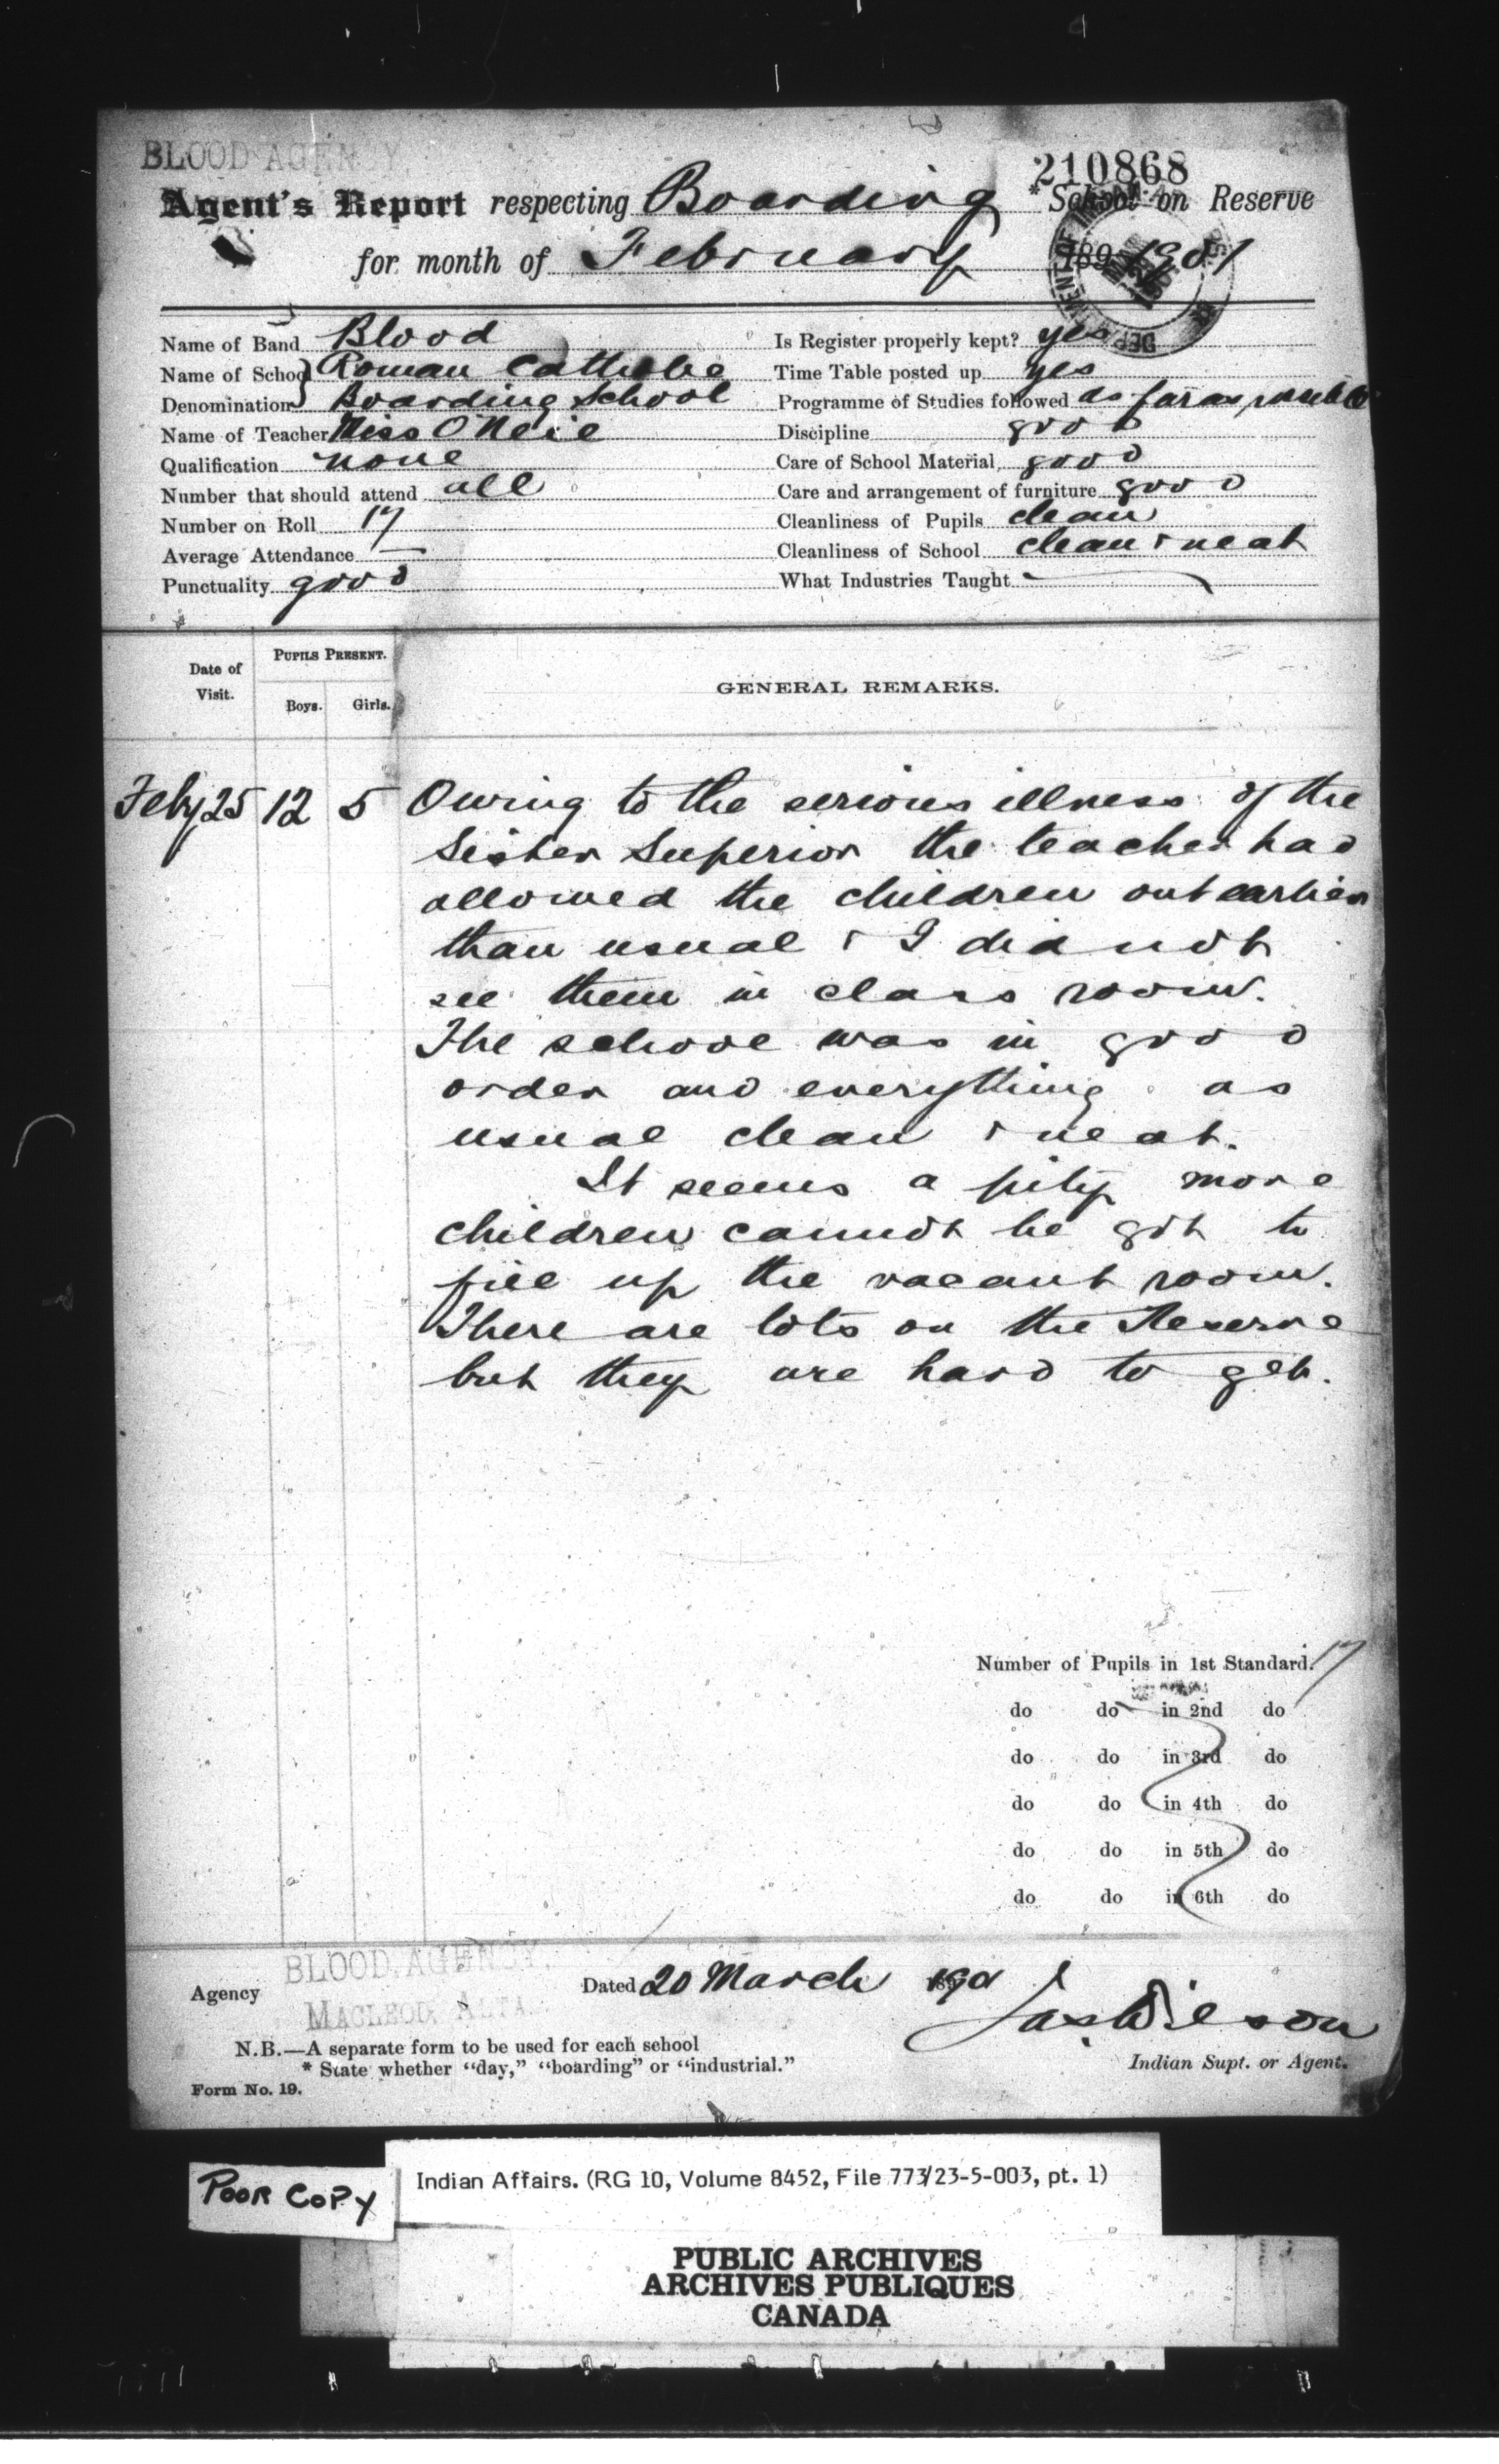 BLOOD AGENCY
210868
Agent's Report respecting Boarding * School on Reserve
for month of February 189 1901
Name of Band Blood
Name of School Roman Catholic
Denomination Boarding School
Name of Teacher Miss O'Neil
Qualification none
Number that should attend all
Number on Roll 17
Average Attendance —
Punctuality good
Is Register properly kept? yes
Time Table posted up yes
Programme of Studies followed as far as possible
Discipline good
Care of School Material, good
Care and arrangement of furniture good
Cleanliness of Pupils clean
Cleanliness of School clean & neat
What Industries Taught —
Date of Visit.
PUPILS PRESENT.
Boys. Girls.
GENERAL REMARKS.
Feby 25 12 5 Owing to the serious illness of the
Sister Superior the teacher had
allowed the children out earlier
than usual & I did not
see them in class room.
The school was in good
order and everything as
usual clean & neat.
It seems a pity more
children cannot be got to
fill up the vacant room.
There are lots on the Reserve
but they are hard to get.
Number of Pupils in 1st Standard. 17
do do in 2nd do
do do in 3rd do
do do in 4th do
do do in 5th do
do do in 6th do
Agency BLOOD AGENCY,
MACLEOD, ALTA.
Dated 20 March 1901
Jas Wilson
Indian Supt. or Agent.
N.B.—A separate form to be used for each school
* State whether "day," "boarding" or "industrial."
Form No. 19.
POOR COPY
Indian Affairs. (RG 10, Volume 8452, File 773/23-5-003, pt. 1)
PUBLIC ARCHIVES
ARCHIVES PUBLIQUES
CANADA